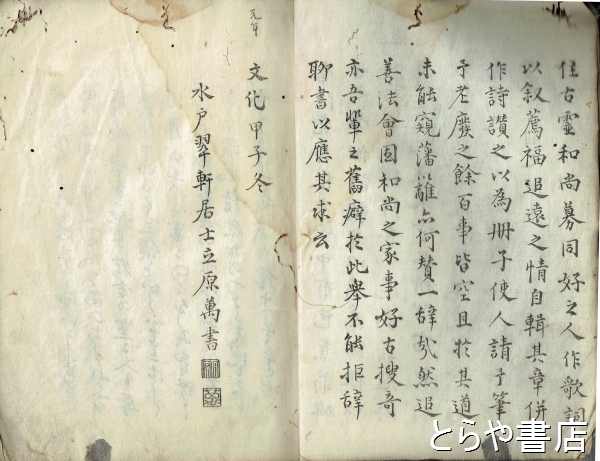 住古靈和尚募同好之人作歌詞
以叙薦福追遠之情自輯其章併
作詩讃之以為冊子使人請予筆
予老廢之餘百事皆空且於其道
未能窺藩籬亦何賛一辞哉然追
善法會固和尚之家事好古搜奇
亦吾輩之舊癖於此舉不能拒辞
聊書以應其求云
文化甲子冬
元年
水戸翠軒居士立原萬書
とらや書店